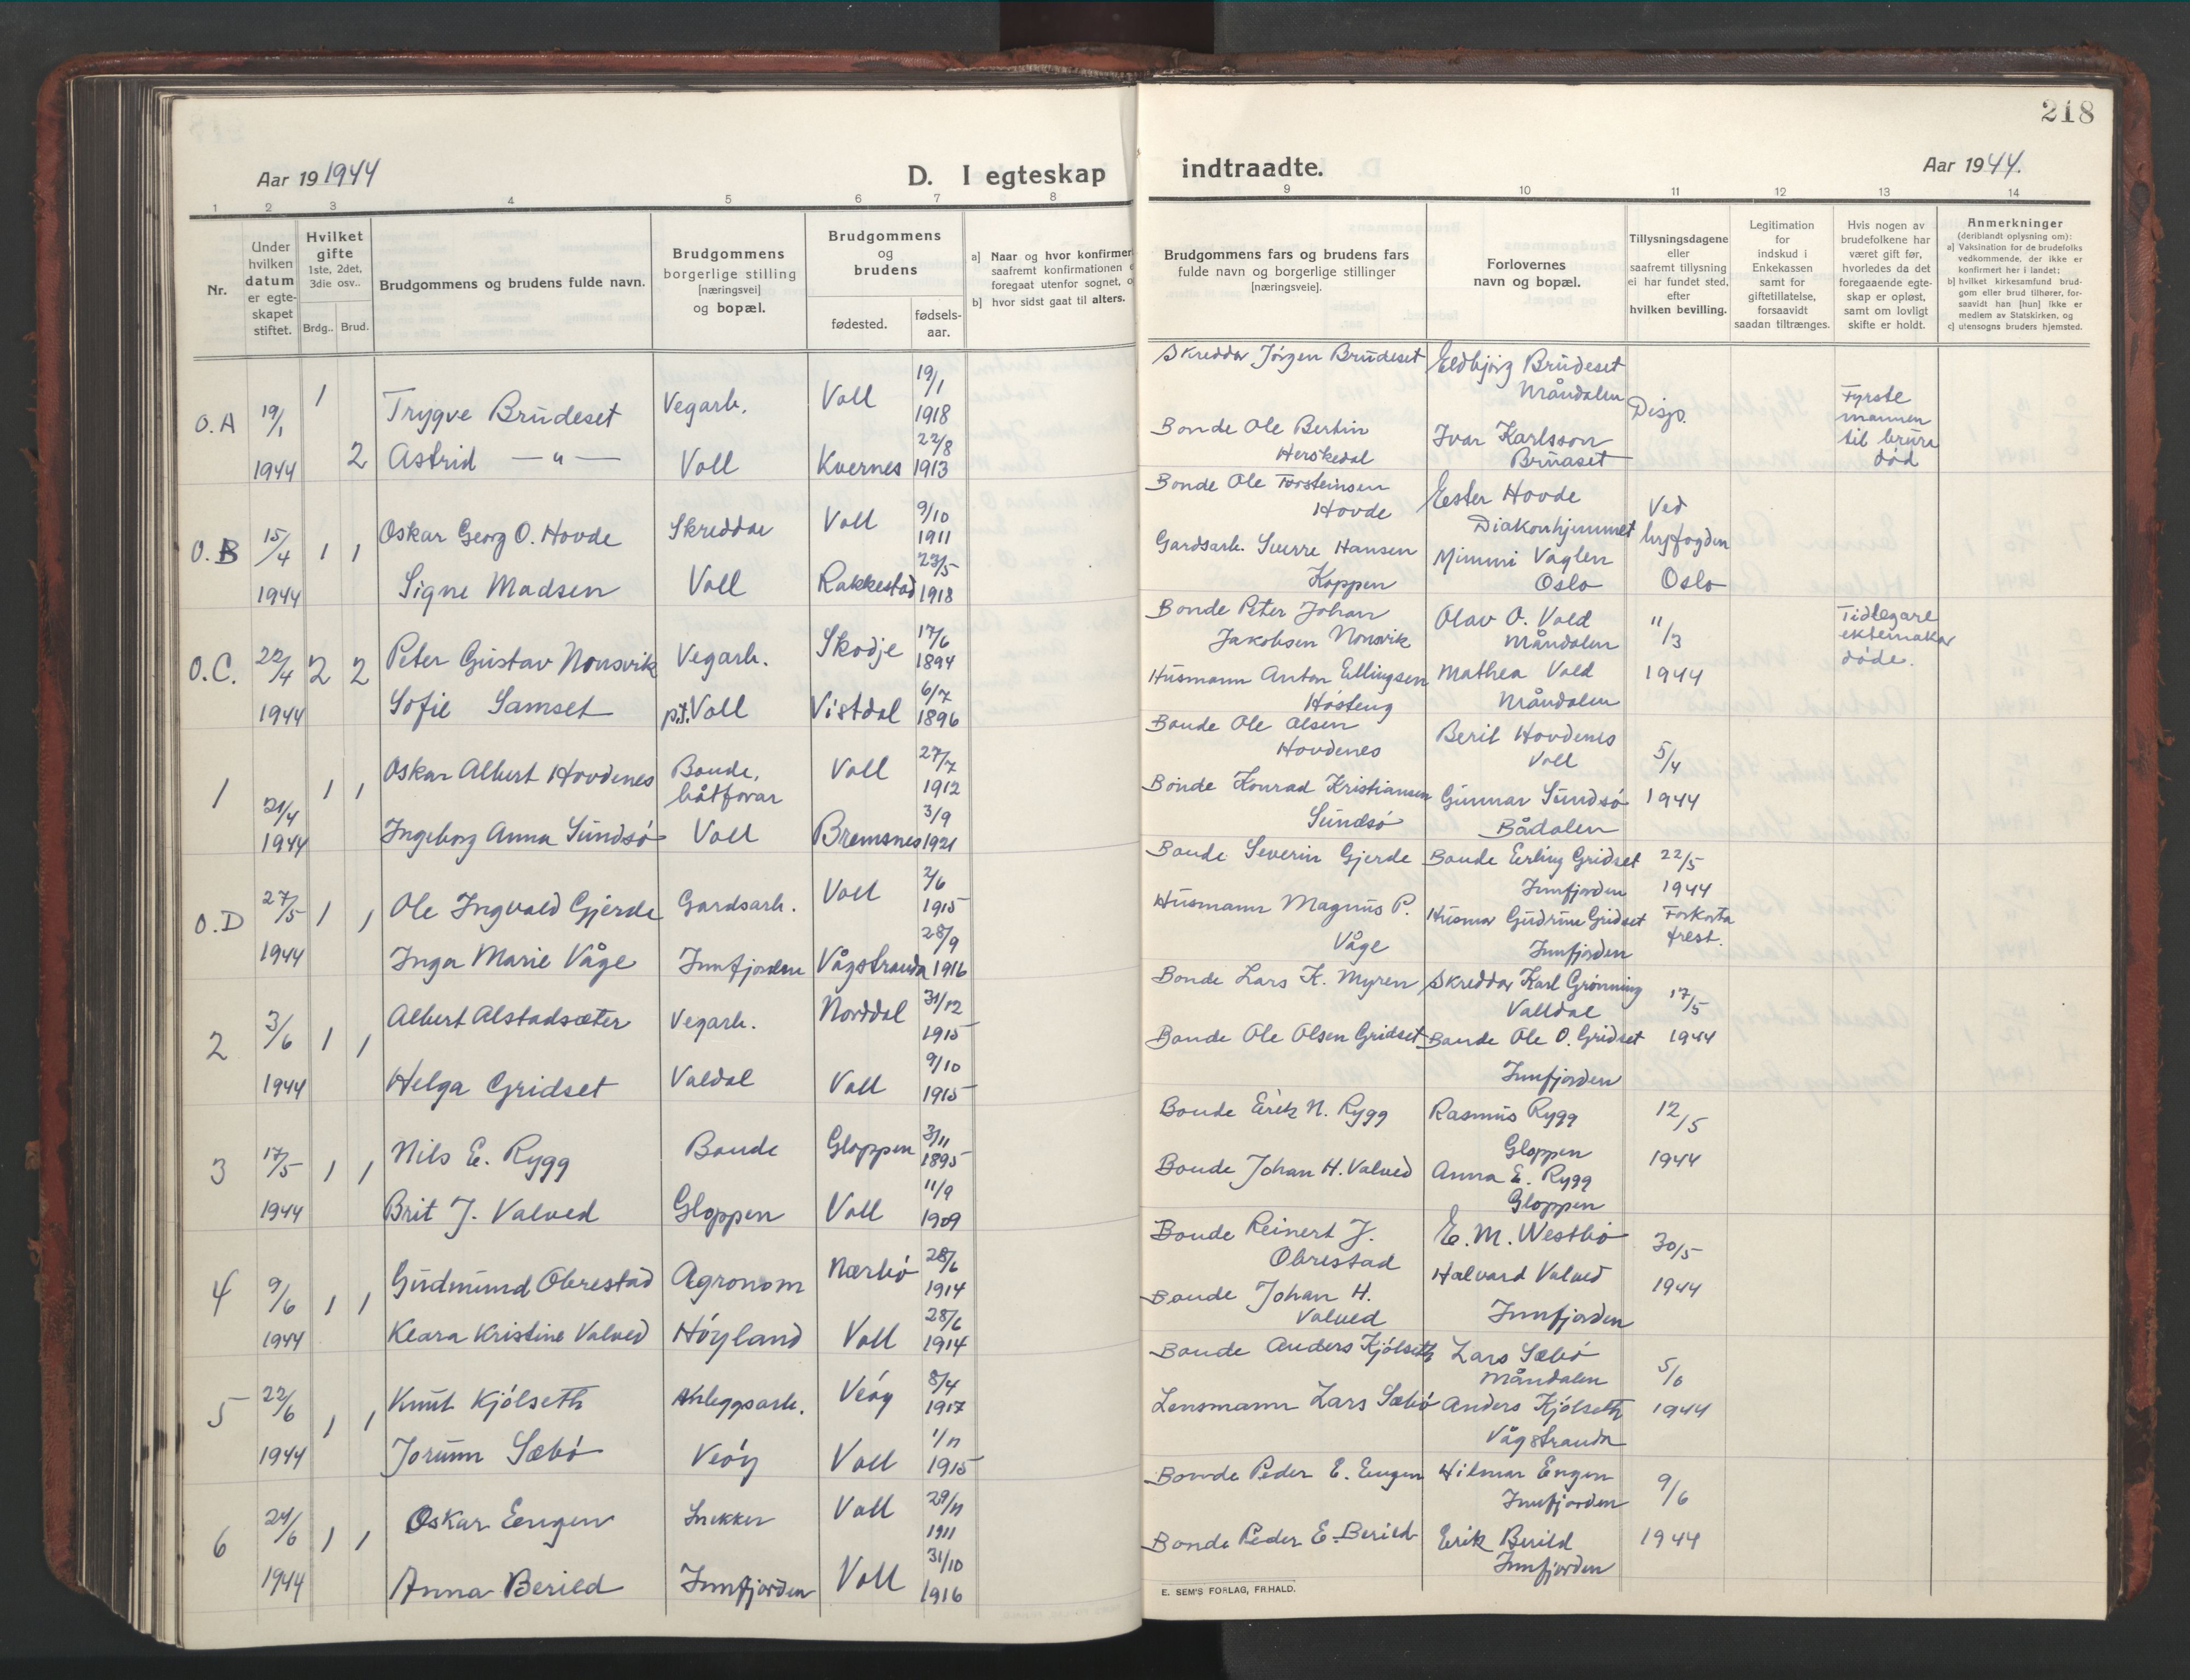 218
Aar 19 1944
D. I egteskap
indtraadte.
Aar 1944.
1 2 3 4 5 6 7 8
9 10 11 12 13 14
Nr.
Under
hvilken
datum
er egte-
skapet
stiftet.
Hvilket
gifte
1ste, 2det,
3die osv..
Brdg.. Brud.
Brudgommens og brudens fulde navn.
Brudgommens
borgerlige stilling
[næringsvei]
og bopæl.
Brudgommens
og
brudens
fødested.
fødsels-
aar.
a] Naar og hvor konfirmer
saafremt konfirmationen
foregaat utenfor sognet,
b] hvor sidst gaat til alters.
Brudgommens fars og brudens fars
fulde navn og borgerlige stillinger
[næringsveie].
Forlovernes
navn og bopæl.
Tillysningsdagene
eller
saafremt tillysning
ei har fundet sted,
efter
hvilken bevilling.
Legitimation
for
indskud i
Enkekassen
samt for
giftetillatelse,
forsaavidt
saadan tiltrænges.
Hvis nogen av
brudefolkene har
været gift før,
hvorledes da det
foregaaende egte-
skap er opløst,
samt om lovligt
skifte er holdt.
Anmerkninger
(deriblandt oplysning om):
a] Vaksination for de brudefolks
vedkommende, der ikke er
konfirmert her i landet;
b] hvilket kirkesamfund brud-
gom eller brud tilhører, for-
saavidt han [hun] ikke er
medlem av Statskirken, og
c] utensogns bruders hjemsted.
O.A 19/1 1 Trygve Brudeset Vegarb. Voll 19/1 1918
1944 2 Astrid — " — Voll Kvernes 22/8 1913
Skreddar Jørgen Brudeset Eldbjørg Brudeset
Måndalen Disp.
Bonde Ole Bertin Ivar Karlsson
Herskedal Bruaset
Fyrste
mannen
til brura
død
O.B 15/4 1 1 Oskar Georg O. Hovde Skreddar Voll 9/10 1911
1944 Signe Madsen Voll Rakkestad 23/5 1918
Bonde Ole Torsteinsen Ester Hovde Ved
Hovde Diakonhjemmet byfogden
Gardsarb. Sverre Hansen Mimmi Vaglen
Koppen Oslo Oslo
O.C. 22/4 2 2 Peter Gustav Nonsvik Vegarb. Skodje 17/6 1894
1944 Sofie Samset p.t. Voll Vistdal 6/7 1896
Bonde Peter Johan Olav O. Vold 11/3
Jakobsen Nonsvik Måndalen
Husmann Anton Ellingsen Mathea Vold 1944
Høsteng Måndalen
Tidlegare
ektemakar
døde.
1 21/4 1 1 Oskar Albert Hovdenes Bonde, Voll 27/7 1912
båtførar
1944 Ingeborg Anna Sundsø Voll Bremsnes 3/9 1921
Bonde Ole Olsen Beril Hovdenes
Hovdenes Voll 5/4
Bonde Konrad Kristiansen Gunnar Sundsø 1944
Sundsø Bådalen
O.D 27/5 1 1 Ole Ingvald Gjerde Gardsarb. Voll 2/6 1915
1944 Inga Marie Våge Innfjorden Vågstranda 28/9 1916
Bonde Severin Gjerde Bonde Erling Gridset 22/5
Innfjorden 1944
Husmann Magnus P. Husmor Gudrun Gridset Forkorta
Våge Innfjorden frest.
2 3/6 1 1 Albert Alstadsæter Vegarb. Norddal 31/12 1915
1944 Helga Gridset Valdal Voll 9/10 1915
Bonde Lars K. Myren Skreddar Karl Grønning 17/5
Valldal
Bonde Ole Olsen Gridset Bonde Ole O. Gridset 1944
Innfjorden
3 17/5 1 1 Nils E. Rygg Bonde Gloppen 3/11 1895
1944 Brit J. Valved Gloppen Voll 11/9 1909
Bonde Erik N. Rygg Rasmus Rygg 12/5
Gloppen 1944
Bonde Johan H. Valved Anna E. Rygg
Gloppen
4 9/6 1 1 Gudmund Obrestad Agronom Nærbø 28/6 1914
1944 Klara Kristine Valved Høyland Voll 28/6 1914
Bonde Reinert J. E. M. Westbø 30/5
Obrestad
Bonde Johan H. Halvard Valved 1944
Valved Innfjorden
5 22/6 1 1 Knut Kjølseth Anleggsarb. Veøy 8/4 1917
1944 Jorunn Sæbø Veøy Voll 1/11 1915
Bonde Anders Kjølseth Lars Sæbø
Måndalen 5/6
Lensmann Lars Sæbø Anders Kjølseth 1944
Vågstranda
6 24/6 1 1 Oskar Engen Snekker Voll 29/11 1911
1944 Anna Berild Innfjorden Voll 31/10 1916
Bonde Peder E. Engen Hilmar Engen 9/6
Innfjorden
Bonde Peder E. Berild Erik Berild 1944
Innfjorden
E. SEM'S FORLAG, FR.HALD.